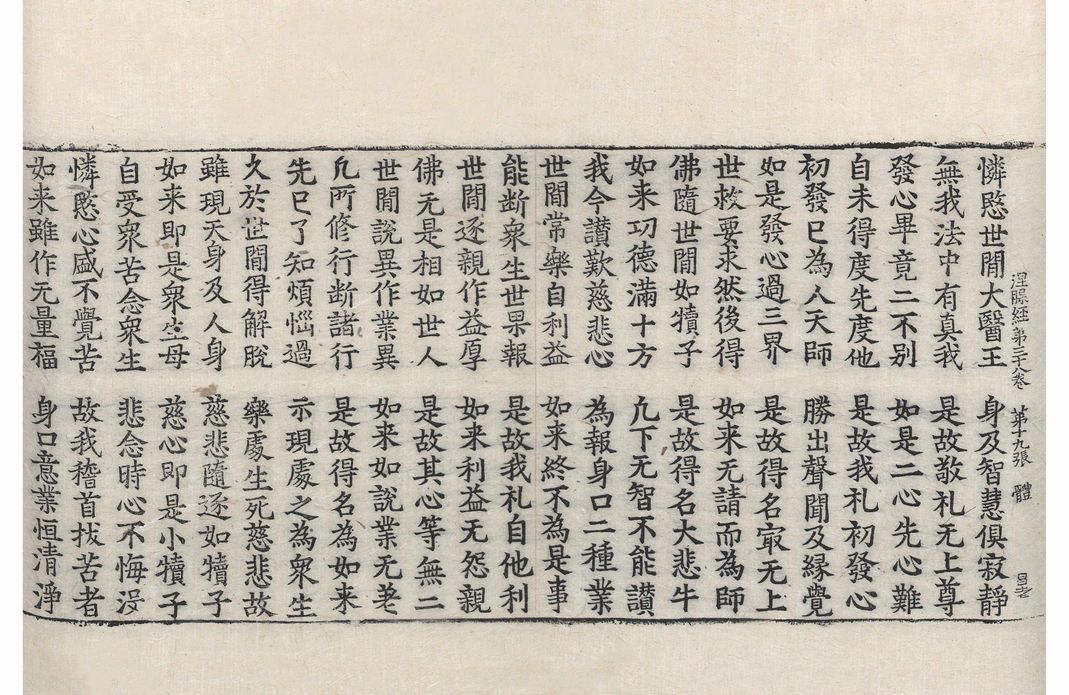 涅槃經第三十八卷 第十九張 體
憐愍世間大醫王 身及智慧俱寂靜
無我法中有真我 是故敬礼无上尊
發心畢竟二不別 如是二心先心難
自未得度先度他 是故我礼初發心
初發已為人天師 勝出聲聞及緣覺
如是發心過三界 是故得名冣无上
世救要求然後得 如来无請而為師
佛隨世間如犢子 是故得名大悲牛
如来功德滿十方 凢下无智不能讃
我今讃歎慈悲心 為報身口二種業
世間常樂自利益 如来終不為是事
能断衆生世果報 是故我礼自他利
世間逐親作益厚 如来利益无怨親
佛无是相如世人 是故其心等無二
世間說異作業異 如来如說業无差
凢所修行断諸行 是故得名為如来
先已了知煩惱過 示現處之為衆生
久於世間得解脫 樂處生死慈悲故
雖現天身及人身 慈悲隨逐如犢子
如来即是衆生母 慈心即是小犢子
自受衆苦念衆生 悲念時心不悔没
憐愍心盛不覺苦 故我稽首拔苦者
如来雖作无量福 身口意業恒清淨